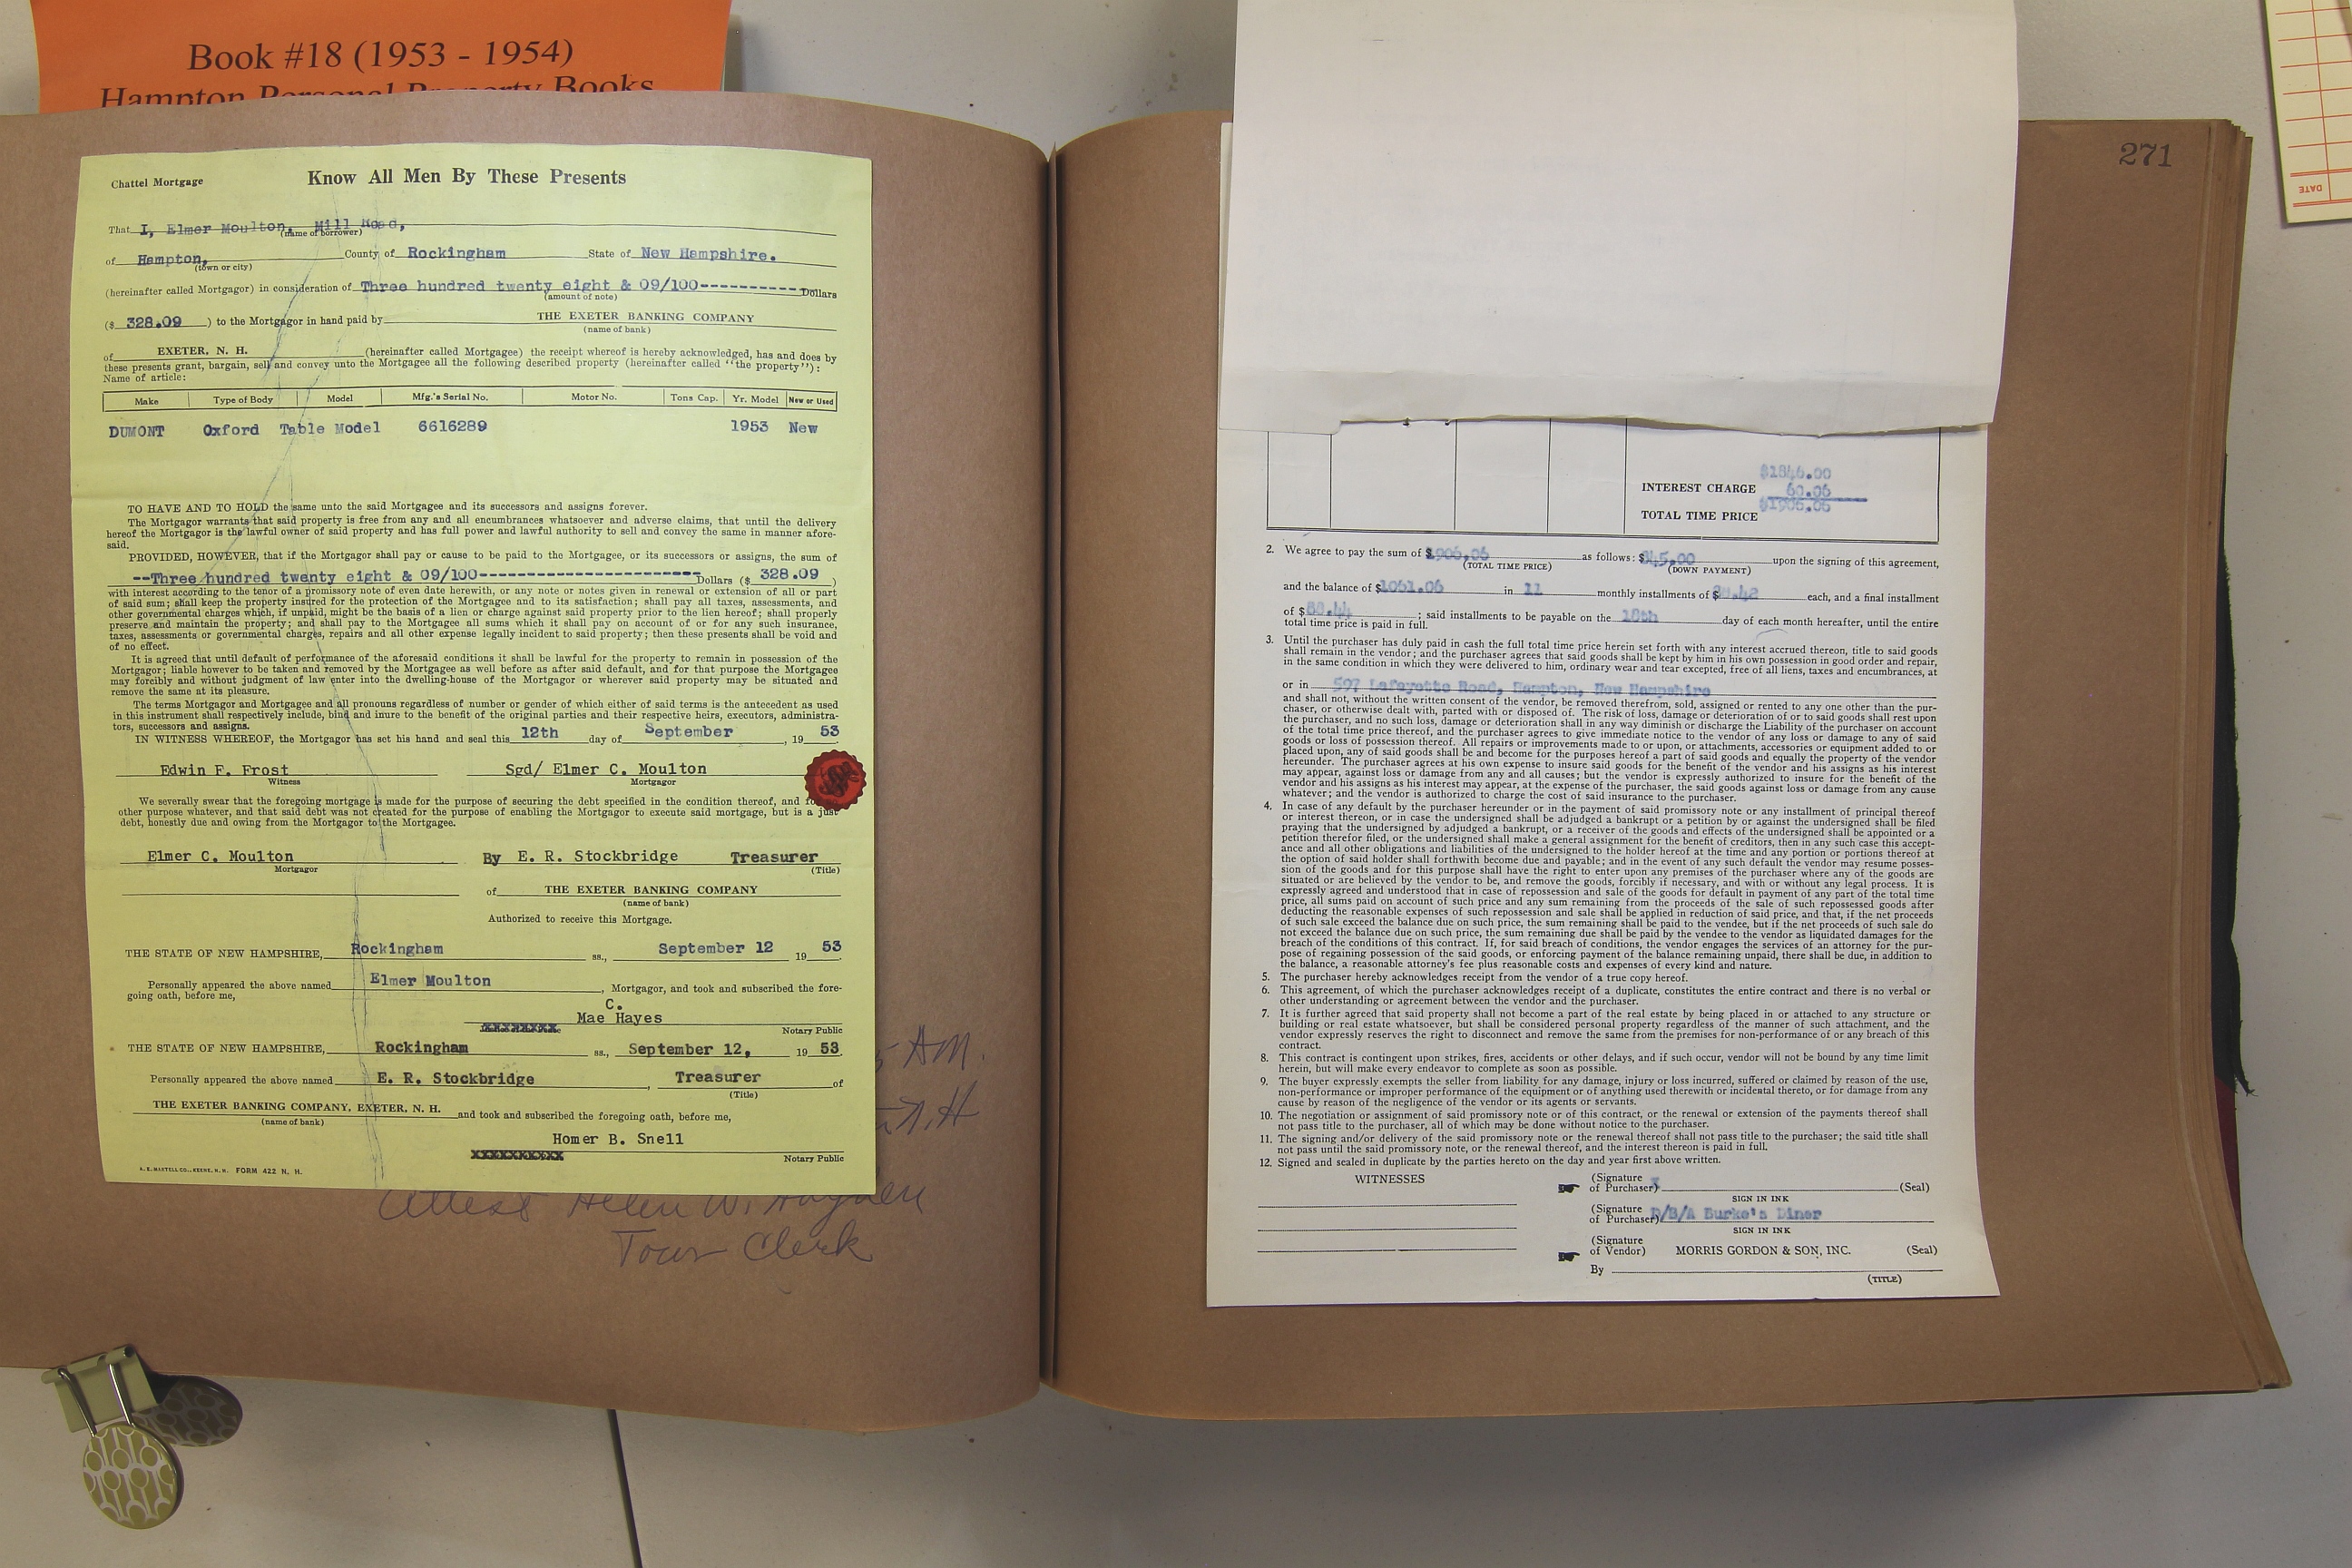 Book #18 (1953 - 1954)
Hampton Personal Property Books
Chattel Mortgage
Know All Men By These Presents
That I, Elmer Moulton, Mill Road,
(name of borrower)
of Hampton, County of Rockingham State of New Hampshire.
(town or city)
(hereinafter called Mortgagor) in consideration of Three hundred twenty eight & 09/100---------- Dollars
(amount of note)
($ 328.09 ) to the Mortgagor in hand paid by THE EXETER BANKING COMPANY
(name of bank)
of EXETER, N. H. (hereinafter called Mortgagee) the receipt whereof is hereby acknowledged, has and does by
these presents grant, bargain, sell and convey unto the Mortgagee all the following described property (hereinafter called "the property"):
Name of article:
Make Type of Body Model Mfg.'s Serial No. Motor No. Tons Cap. Yr. Model New or Used
DUMONT Oxford Table Model 6616289 1953 New
TO HAVE AND TO HOLD the same unto the said Mortgagee and its successors and assigns forever.
The Mortgagor warrants that said property is free from any and all encumbrances whatsoever and adverse claims, that until the delivery
hereof the Mortgagor is the lawful owner of said property and has full power and lawful authority to sell and convey the same in manner afore-
said.
PROVIDED, HOWEVER, that if the Mortgagor shall pay or cause to be paid to the Mortgagee, or its successors or assigns, the sum of
--Three hundred twenty eight & 09/100------------------------ Dollars ($ 328.09 )
with interest according to the tenor of a promissory note of even date herewith, or any note or notes given in renewal or extension of all or part
of said sum; shall keep the property insured for the protection of the Mortgagee and to its satisfaction; shall pay all taxes, assessments, and
other governmental charges which, if unpaid, might be the basis of a lien or charge against said property prior to the lien hereof; shall properly
preserve and maintain the property; and shall pay to the Mortgagee all sums which it shall pay on account of or for any such insurance,
taxes, assessments or governmental charges, repairs and all other expense legally incident to said property; then these presents shall be void and
of no effect.
It is agreed that until default of performance of the aforesaid conditions it shall be lawful for the property to remain in possession of the
Mortgagor; liable however to be taken and removed by the Mortgagee as well before as after said default, and for that purpose the Mortgagee
may forcibly and without judgment of law enter into the dwelling-house of the Mortgagor or wherever said property may be situated and
remove the same at its pleasure.
The terms Mortgagor and Mortgagee and all pronouns regardless of number or gender of which either of said terms is the antecedent as used
in this instrument shall respectively include, bind and inure to the benefit of the original parties and their respective heirs, executors, administra-
tors, successors and assigns.
IN WITNESS WHEREOF, the Mortgagor has set his hand and seal this 12th day of September , 19 53
Edwin F. Frost Sgd/ Elmer C. Moulton
Witness Mortgagor
We severally swear that the foregoing mortgage is made for the purpose of securing the debt specified in the condition thereof, and
other purpose whatever, and that said debt was not created for the purpose of enabling the Mortgagor to execute said mortgage, but is a just
debt, honestly due and owing from the Mortgagor to the Mortgagee.
Elmer C. Moulton By E. R. Stockbridge Treasurer
Mortgagor (Title)
of THE EXETER BANKING COMPANY
(name of bank)
Authorized to receive this Mortgage.
THE STATE OF NEW HAMPSHIRE, Rockingham ss., September 12 19 53
Personally appeared the above named Elmer Moulton , Mortgagor, and took and subscribed the fore-
going oath, before me,
C.
Mae Hayes
Notary Public
THE STATE OF NEW HAMPSHIRE, Rockingham ss., September 12, 19 53
Personally appeared the above named E. R. Stockbridge , Treasurer of
(Title)
THE EXETER BANKING COMPANY, EXETER, N. H. and took and subscribed the foregoing oath, before me,
(name of bank)
Homer B. Snell
xxxxxxxxxx Notary Public
A. E. MARTELL CO., KEENE, N. H. FORM 422 N. H.
5 AM.
N.H
Attest Helen W. Hayden
Town Clerk
271
DATE
$1846.00
INTEREST CHARGE 60.06
$1906.06
TOTAL TIME PRICE
2. We agree to pay the sum of $1906.06 as follows: $845.00 upon the signing of this agreement,
(TOTAL TIME PRICE) (DOWN PAYMENT)
and the balance of $1061.06 in 11 monthly installments of $88.42 each, and a final installment
of $88.44 ; said installments to be payable on the 18th day of each month hereafter, until the entire
total time price is paid in full.
3. Until the purchaser has duly paid in cash the full total time price herein set forth with any interest accrued thereon, title to said goods
shall remain in the vendor; and the purchaser agrees that said goods shall be kept by him in his own possession in good order and repair,
in the same condition in which they were delivered to him, ordinary wear and tear excepted, free of all liens, taxes and encumbrances, at
or in 597 Lafayette Road, Hampton, New Hampshire
and shall not, without the written consent of the vendor, be removed therefrom, sold, assigned or rented to any one other than the pur-
chaser, or otherwise dealt with, parted with or disposed of. The risk of loss, damage or deterioration of or to said goods shall rest upon
the purchaser, and no such loss, damage or deterioration shall in any way diminish or discharge the Liability of the purchaser on account
of the total time price thereof, and the purchaser agrees to give immediate notice to the vendor of any loss or damage to any of said
goods or loss of possession thereof. All repairs or improvements made to or upon, or attachments, accessories or equipment added to or
placed upon, any of said goods shall be and become for the purposes hereof a part of said goods and equally the property of the vendor
hereunder. The purchaser agrees at his own expense to insure said goods for the benefit of the vendor and his assigns as his interest
may appear, against loss or damage from any and all causes; but the vendor is expressly authorized to insure for the benefit of the
vendor and his assigns as his interest may appear, at the expense of the purchaser, the said goods against loss or damage from any cause
whatever; and the vendor is authorized to charge the cost of said insurance to the purchaser.
4. In case of any default by the purchaser hereunder or in the payment of said promissory note or any installment of principal thereof
or interest thereon, or in case the undersigned shall be adjudged a bankrupt or a petition by or against the undersigned shall be filed
praying that the undersigned by adjudged a bankrupt, or a receiver of the goods and effects of the undersigned shall be appointed or a
petition therefor filed, or the undersigned shall make a general assignment for the benefit of creditors, then in any such case this accept-
ance and all other obligations and liabilities of the undersigned to the holder hereof at the time and any portion or portions thereof at
the option of said holder shall forthwith become due and payable; and in the event of any such default the vendor may resume posses-
sion of the goods and for this purpose shall have the right to enter upon any premises of the purchaser where any of the goods are
situated or are believed by the vendor to be, and remove the goods, forcibly if necessary, and with or without any legal process. It is
expressly agreed and understood that in case of repossession and sale of the goods for default in payment of any part of the total time
price, all sums paid on account of such price and any sum remaining from the proceeds of the sale of such repossessed goods after
deducting the reasonable expenses of such repossession and sale shall be applied in reduction of said price, and that, if the net proceeds
of such sale exceed the balance due on such price, the sum remaining shall be paid to the vendee, but if the net proceeds of such sale do
not exceed the balance due on such price, the sum remaining due shall be paid by the vendee to the vendor as liquidated damages for the
breach of the conditions of this contract. If, for said breach of conditions, the vendor engages the services of an attorney for the pur-
pose of regaining possession of the said goods, or enforcing payment of the balance remaining unpaid, there shall be due, in addition to
the balance, a reasonable attorney's fee plus reasonable costs and expenses of every kind and nature.
5. The purchaser hereby acknowledges receipt from the vendor of a true copy hereof.
6. This agreement, of which the purchaser acknowledges receipt of a duplicate, constitutes the entire contract and there is no verbal or
other understanding or agreement between the vendor and the purchaser.
7. It is further agreed that said property shall not become a part of the real estate by being placed in or attached to any structure or
building or real estate whatsoever, but shall be considered personal property regardless of the manner of such attachment, and the
vendor expressly reserves the right to disconnect and remove the same from the premises for non-performance of or any breach of this
contract.
8. This contract is contingent upon strikes, fires, accidents or other delays, and if such occur, vendor will not be bound by any time limit
herein, but will make every endeavor to complete as soon as possible.
9. The buyer expressly exempts the seller from liability for any damage, injury or loss incurred, suffered or claimed by reason of the use,
non-performance or improper performance of the equipment or of anything used therewith or incidental thereto, or for damage from any
cause by reason of the negligence of the vendor or its agents or servants.
10. The negotiation or assignment of said promissory note or of this contract, or the renewal or extension of the payments thereof shall
not pass title to the purchaser, all of which may be done without notice to the purchaser.
11. The signing and/or delivery of the said promissory note or the renewal thereof shall not pass title to the purchaser; the said title shall
not pass until the said promissory note, or the renewal thereof, and the interest thereon is paid in full.
12. Signed and sealed in duplicate by the parties hereto on the day and year first above written.
WITNESSES
(Signature
of Purchaser) (Seal)
SIGN IN INK
(Signature
of Purchaser) D/B/A Burke's Diner
SIGN IN INK
(Signature
of Vendor) MORRIS GORDON & SON, INC. (Seal)
By
(TITLE)